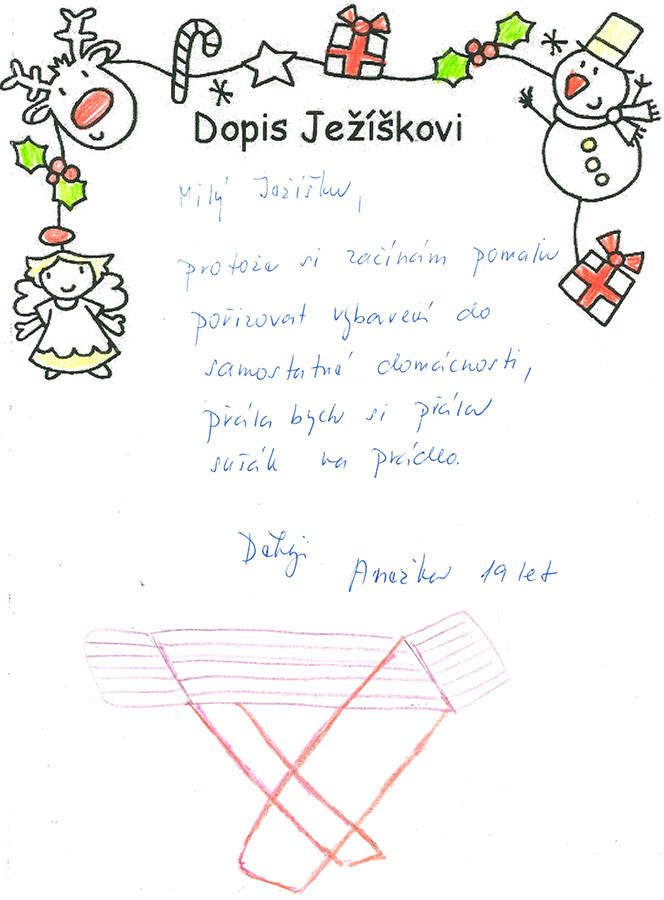 Dopis Ježíškovi
Milý Ježíšku,
protože si začínám pomalu
pořizovat vybavení do
samostatné domácnosti,
přála bych si přála
sušák na prádlo.
Děkuji
Anežka 19 let